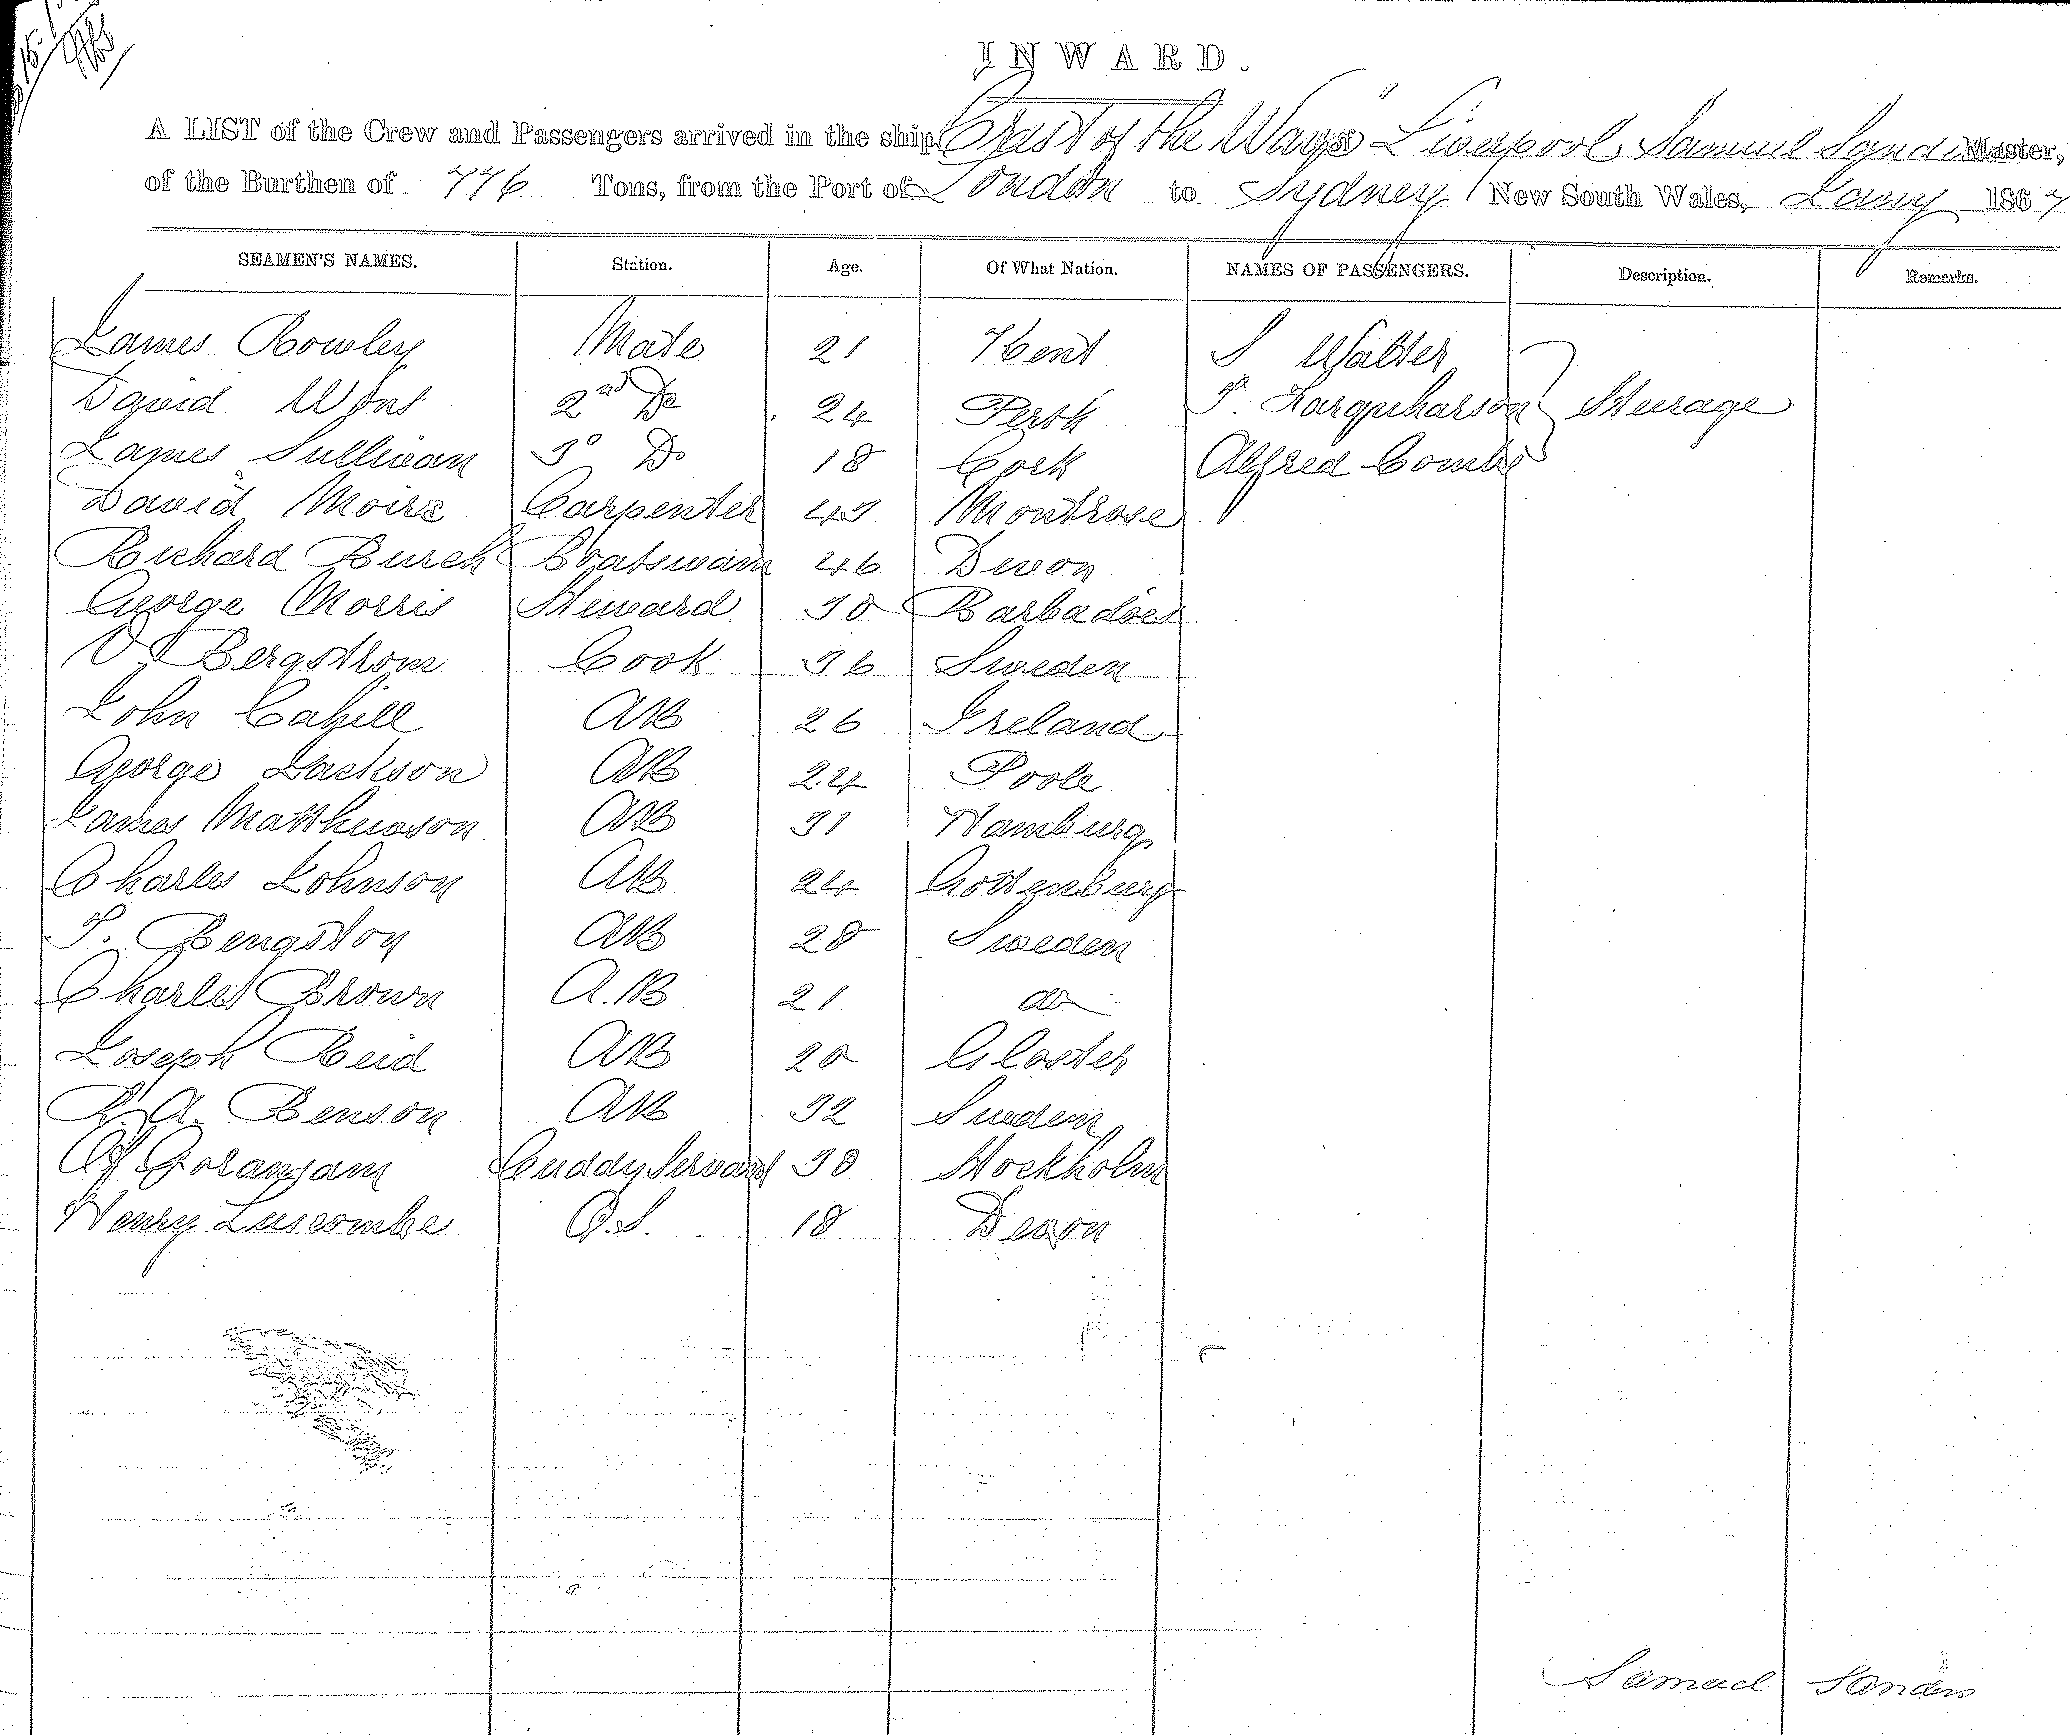 INWARD.
A LIST of the Crew and Passengers arrived in the ship Crest of the Wave Liverpool, Samuel Sanders Master,
of the Burthen of 776 Tons, from the Port of London to Sydney New South Wales, Jany 1867
SEAMEN'S NAMES. Station. Age. Of What Nation. NAMES OF PASSENGERS. Description. Remarks.
James Rowley Mate 21 Kent S Walter
David 2nd Do 24 Perth F. Farquharson Steerage
James Sullivan 3o Do 18 Cork Alfred Combe
David Moire Carpenter 43 Montrose
Richard Burch Boatswain 46 Devon
George Morris Steward 30 Barbadoes
Bergstrom Cook 36 Sweden
John Cahill AB 26 Ireland
George Jackson AB 24 Poole
James Matthewson AB 31 Hamburg
Charles Johnson AB 24 Gottenburg
P. Bengston AB 28 Sweden
Charles Brown A.B 21 do
Joseph Reid AB 20 Gloster
A. Benson AB 32 Sweden
Cuddy Servant 30 Stockholm
Henry Luscombe O.S. 18 Devon
Samuel Sanders